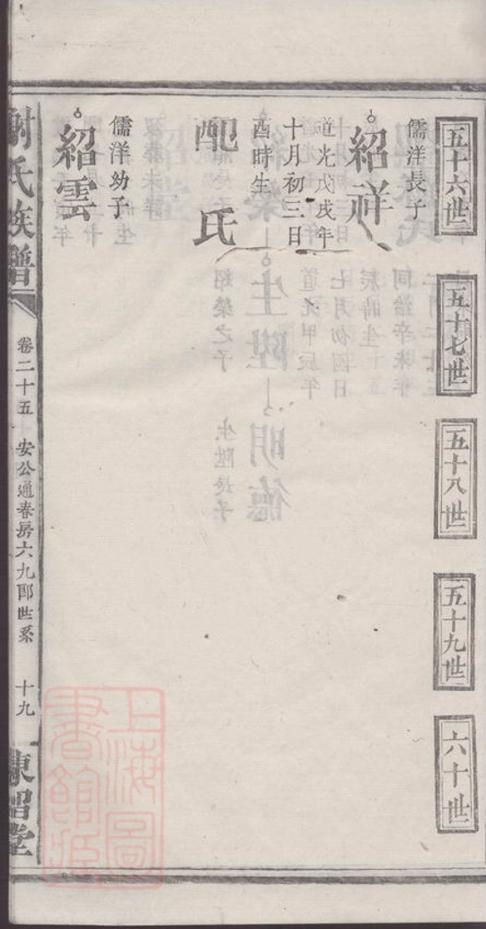 五十六世
五十七世
五十八世
五十九世
六十世
儒洋長子
紹祥
道光戊戌年
十月初三日
酉時生
配 氏
儒洋幼子
紹雲
謝氏族譜
卷二十五 安公通春房六九郎世系 十九
上海圖書館藏